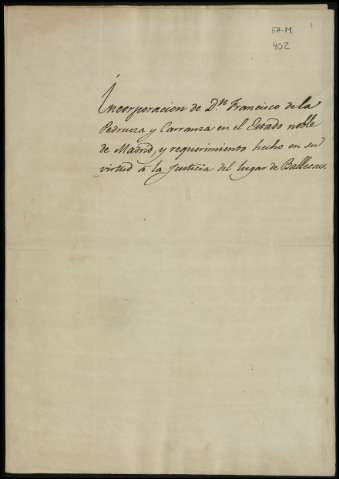 FA-M
402
Incorporacion de Dn. Francisco de la
Pedrueza y Carranza en el Estado noble
de Madrid, y requerimiento hecho en su
virtud á la Justicia del lugar de Ballecas.